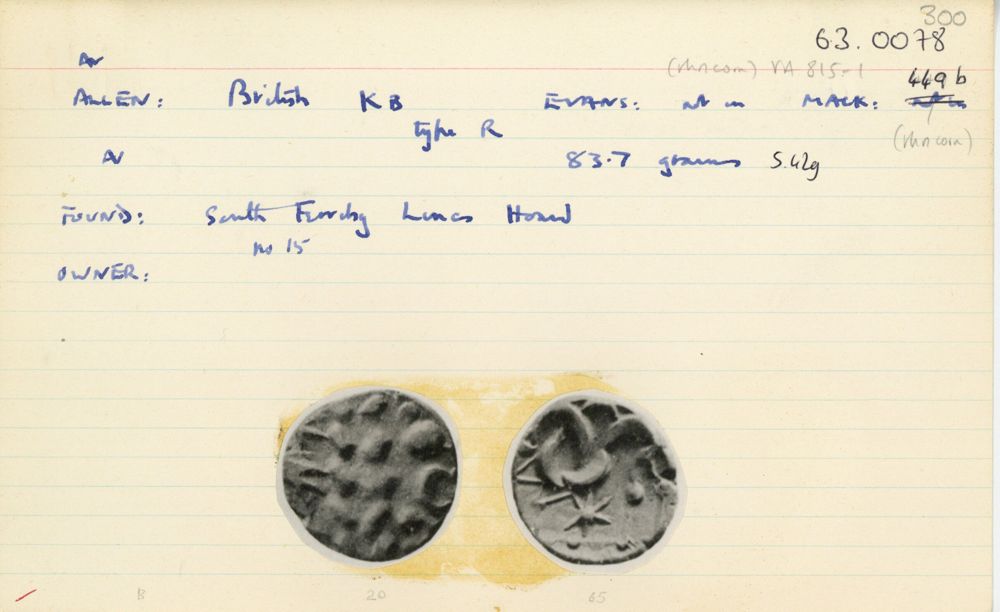 300
63.0078
AV
(Unicorn) VA 815-1
449 b
ALLEN: British KB EVANS: not in MACK: not in
type R
(Unicorn)
AV 83.7 grams 5.42g
FOUND: South Ferriby Lincs Hoard
no 15
OWNER:
B 20 65